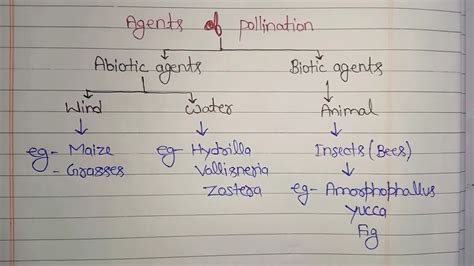 Agents of pollination
Abiotic agents Biotic agents
Wind Water Animal
eg- Maize eg- Hydrilla Insects (Bees)
- Grasses Vallisneria
Zostera eg- Amorphophallus
Yucca
Fig